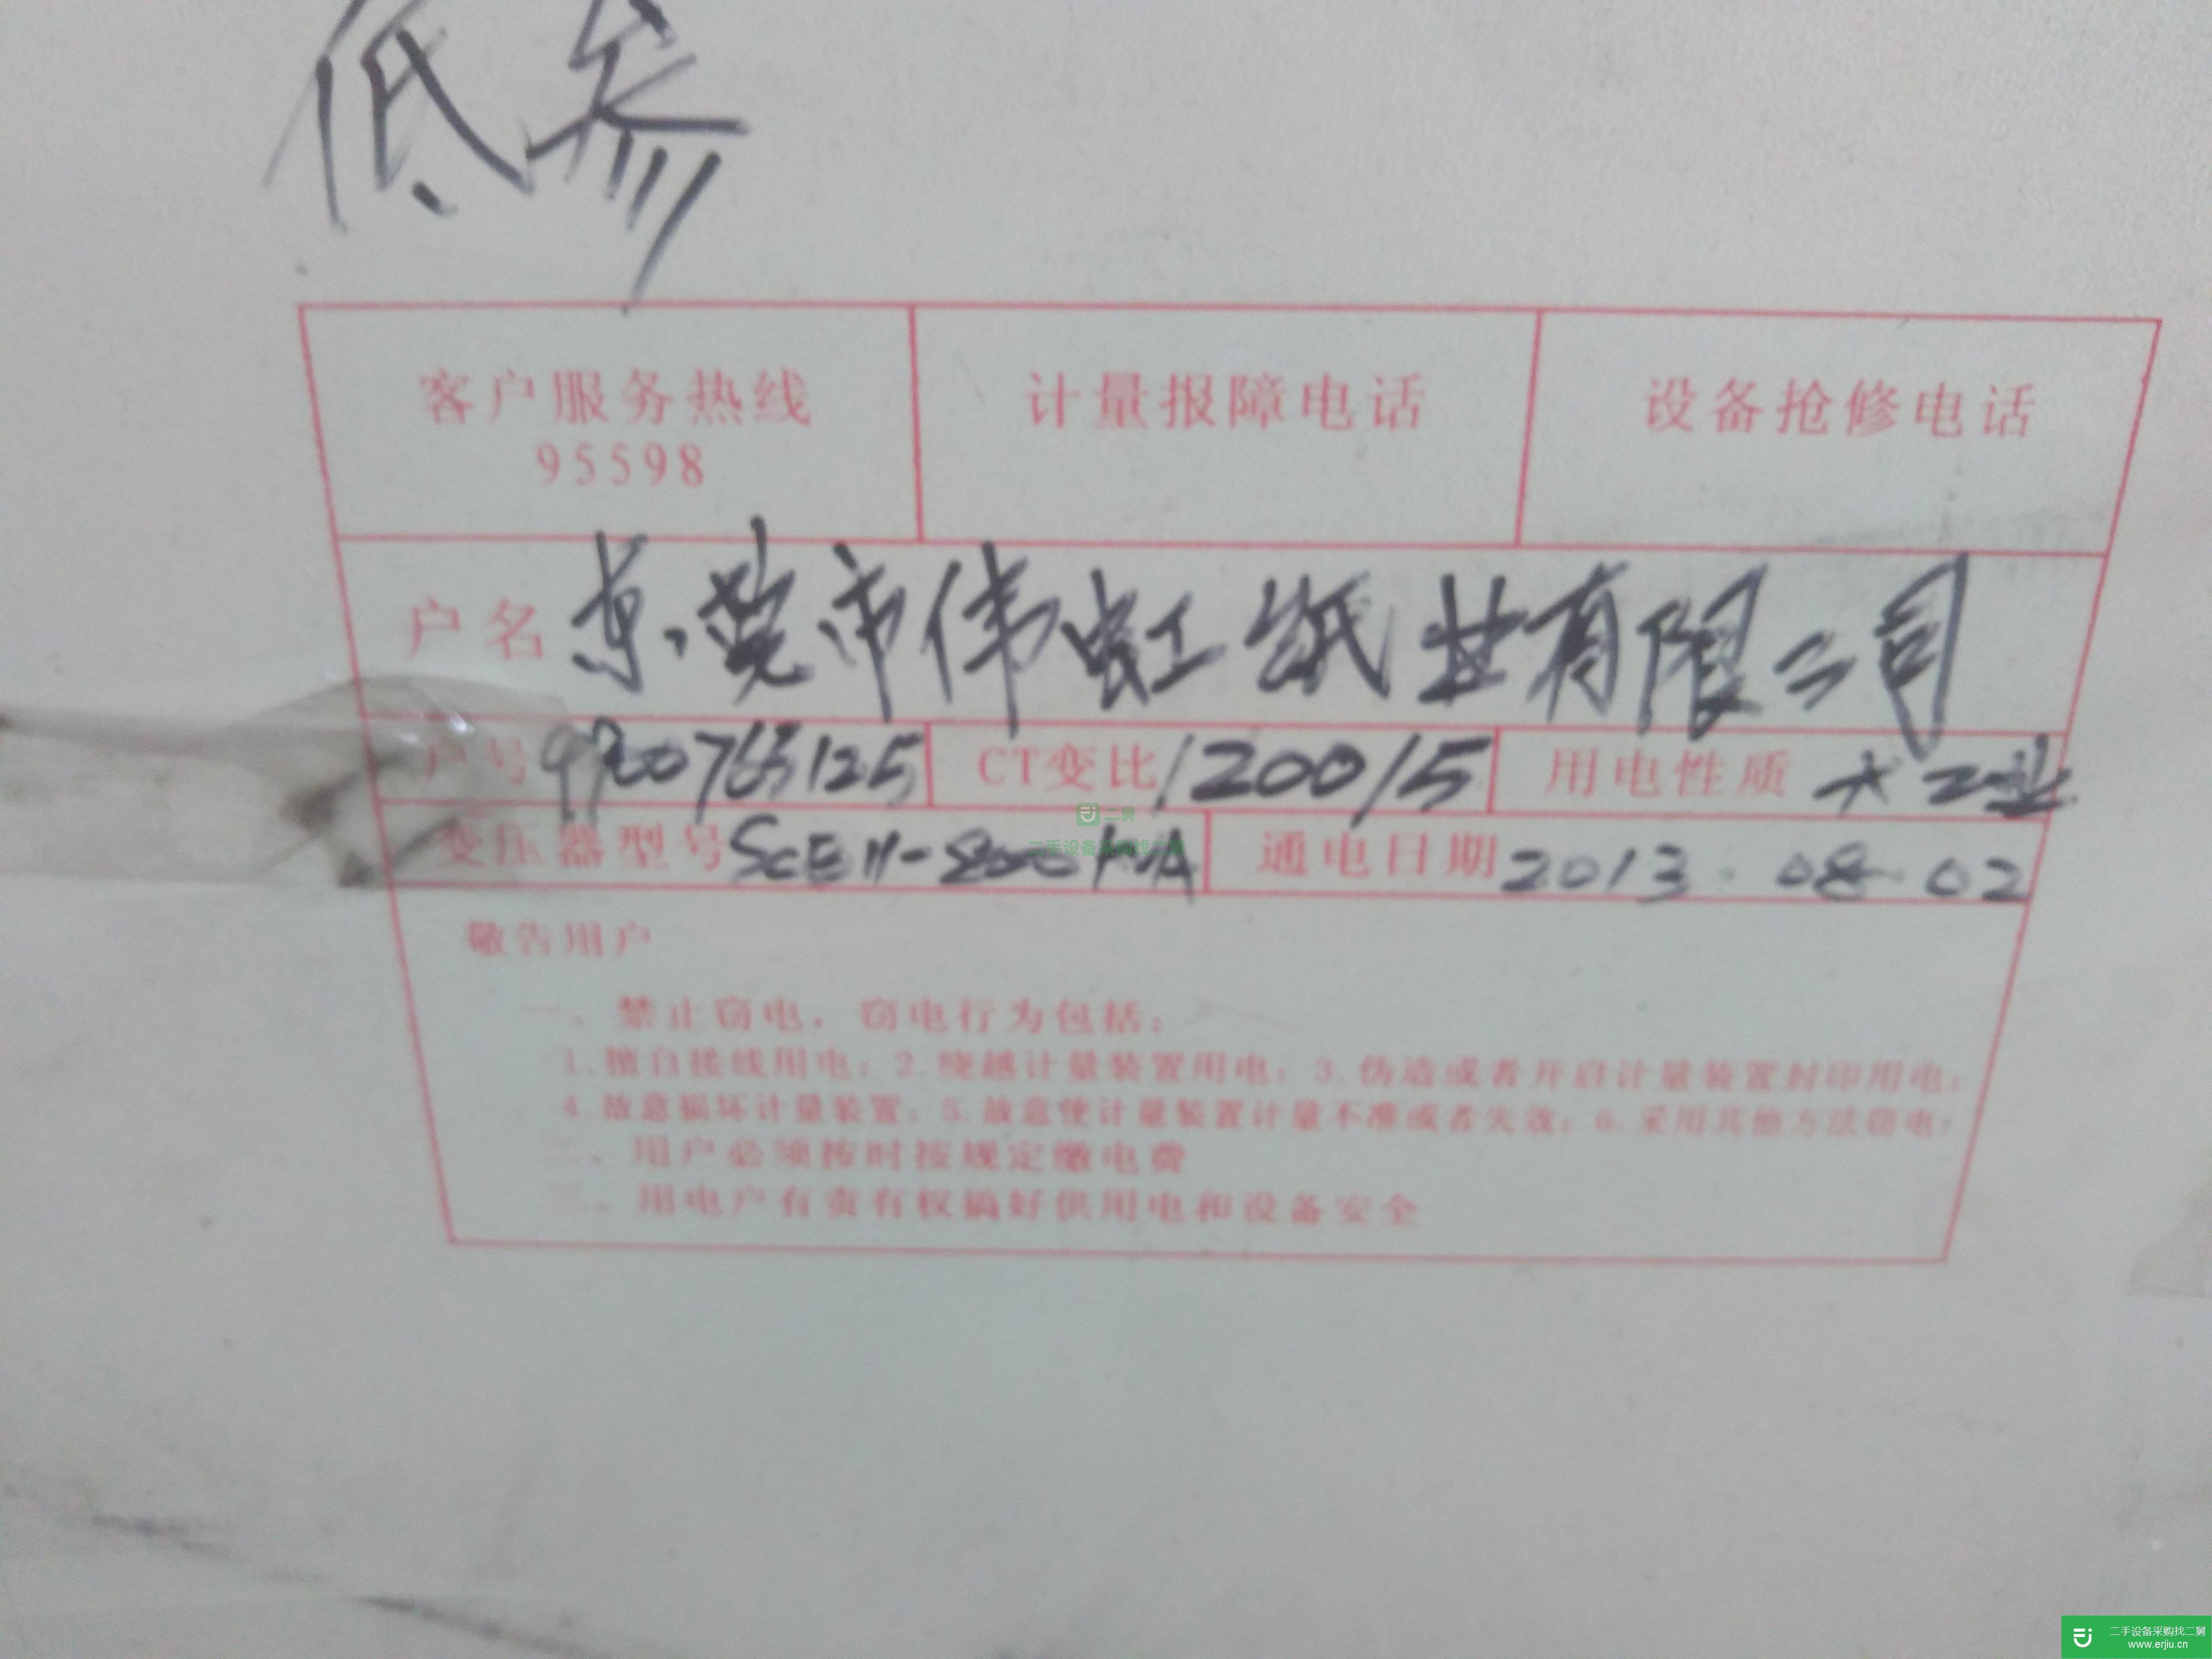 低参
客户服务热线
95598
计量报障电话
设备抢修电话
户名 东莞市伟虹纸业有限公司
户号 CT变比 1200/5 用电性质 大工业
变压器型号 SCB11-800KVA 通电日期 2013.08.02
敬告用户
一、禁止窃电，窃电行为包括：
1.擅自接线用电；2.绕越计量装置用电；3.伪造或者开启计量装置封印用电；
4.故意损坏计量装置；5.故意使计量装置计量不准或者失效；6.采用其他方法窃电；
二、用户必须按时按规定缴电费
三、用电户有责有权搞好供用电和设备安全
二舅
二手设备采购找二舅
二手设备采购找二舅
www.erjiu.cn